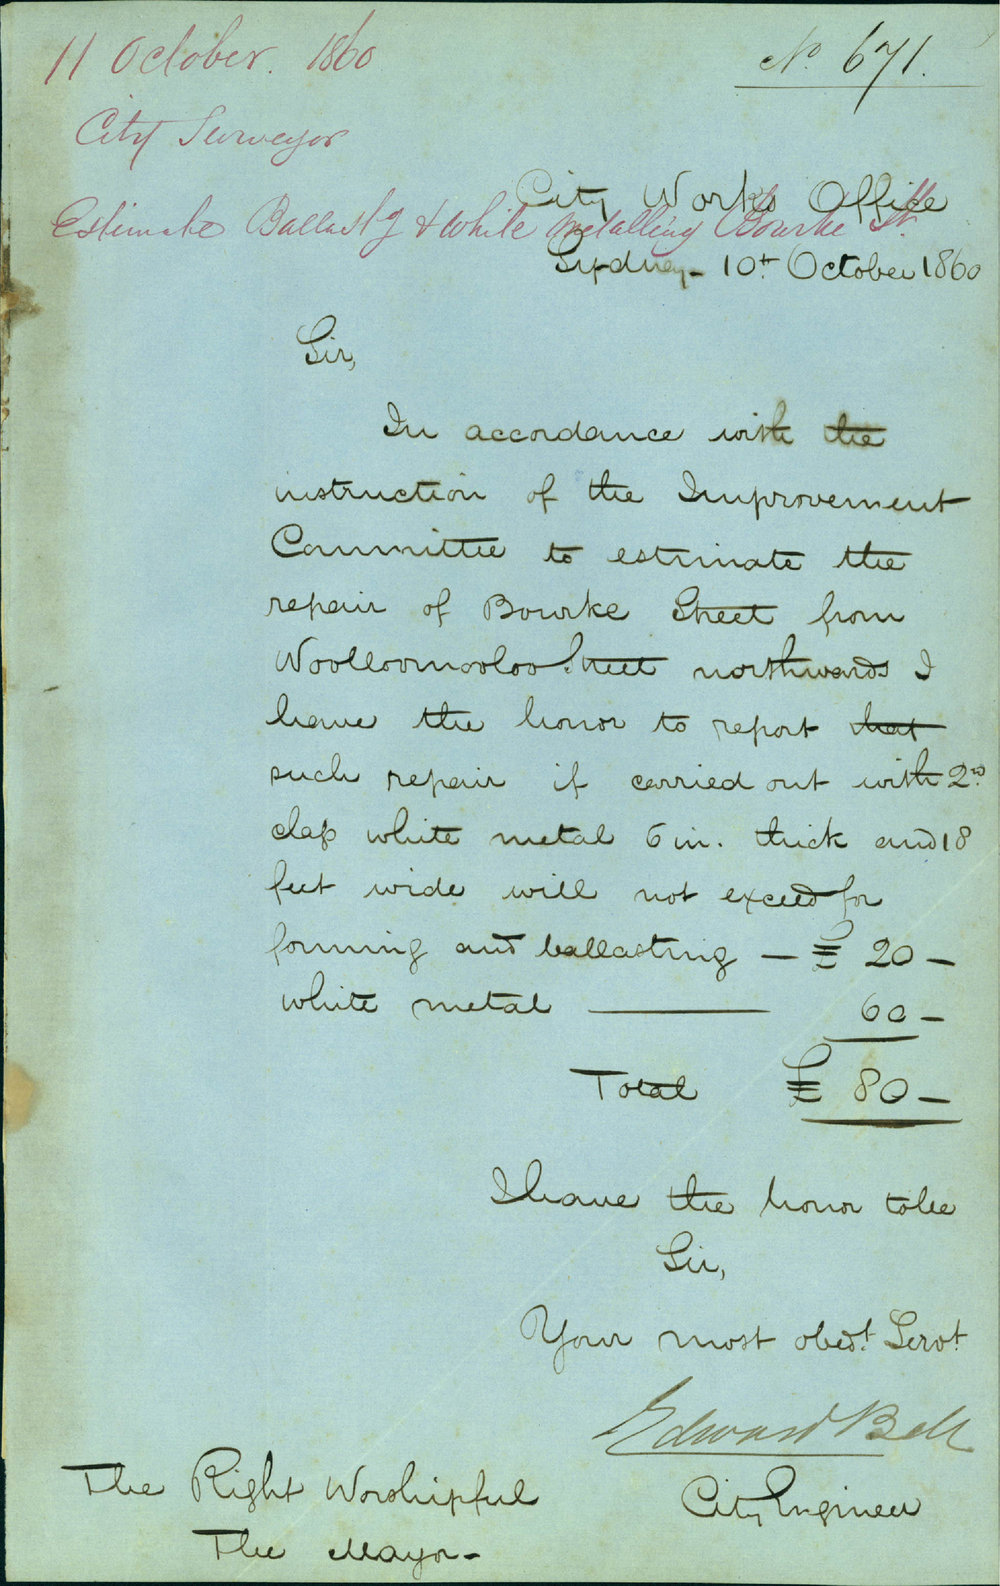 11 October. 1860
No 671.
City Surveyor
Estimate Ballastg & white metalling Bourke St.
City Works Office
Sydney - 10th October 1860
Sir,
In accordance with the
instruction of the Improvement
Committee to estimate the
repair of Bourke Street from
Woolloomooloo Street northwards I
have the honor to report that
such repair if carried out with 2nd
class white metal 6 in. thick and 18
feet wide will not exceed for
forming and ballasting — £ 20 -
white metal — 60 -
Total £ 80 -
I have the honor to be
Sir,
Your most obedt. Servt.
Edward Bell
City Engineer
The Right Worshipful
The Mayor -